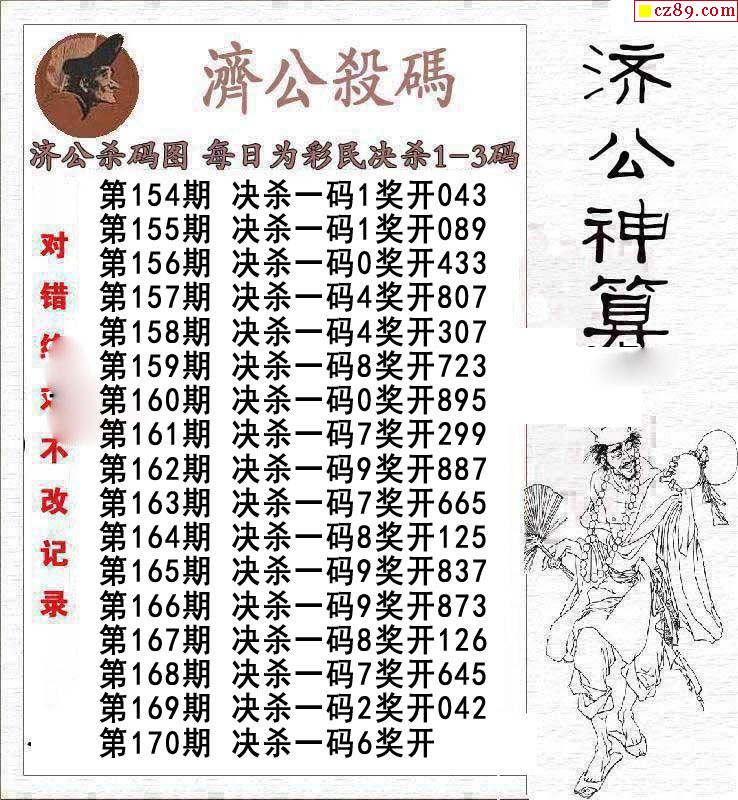 cz89.com
濟公殺碼
济公杀码图 每日为彩民决杀1-3码
第154期 决杀一码1奖开043
第155期 决杀一码1奖开089
第156期 决杀一码0奖开433
第157期 决杀一码4奖开807
第158期 决杀一码4奖开307
第159期 决杀一码8奖开723
第160期 决杀一码0奖开895
第161期 决杀一码7奖开299
第162期 决杀一码9奖开887
第163期 决杀一码7奖开665
第164期 决杀一码8奖开125
第165期 决杀一码9奖开837
第166期 决杀一码9奖开873
第167期 决杀一码8奖开126
第168期 决杀一码7奖开645
第169期 决杀一码2奖开042
第170期 决杀一码6奖开
对错不改记录
济公神算